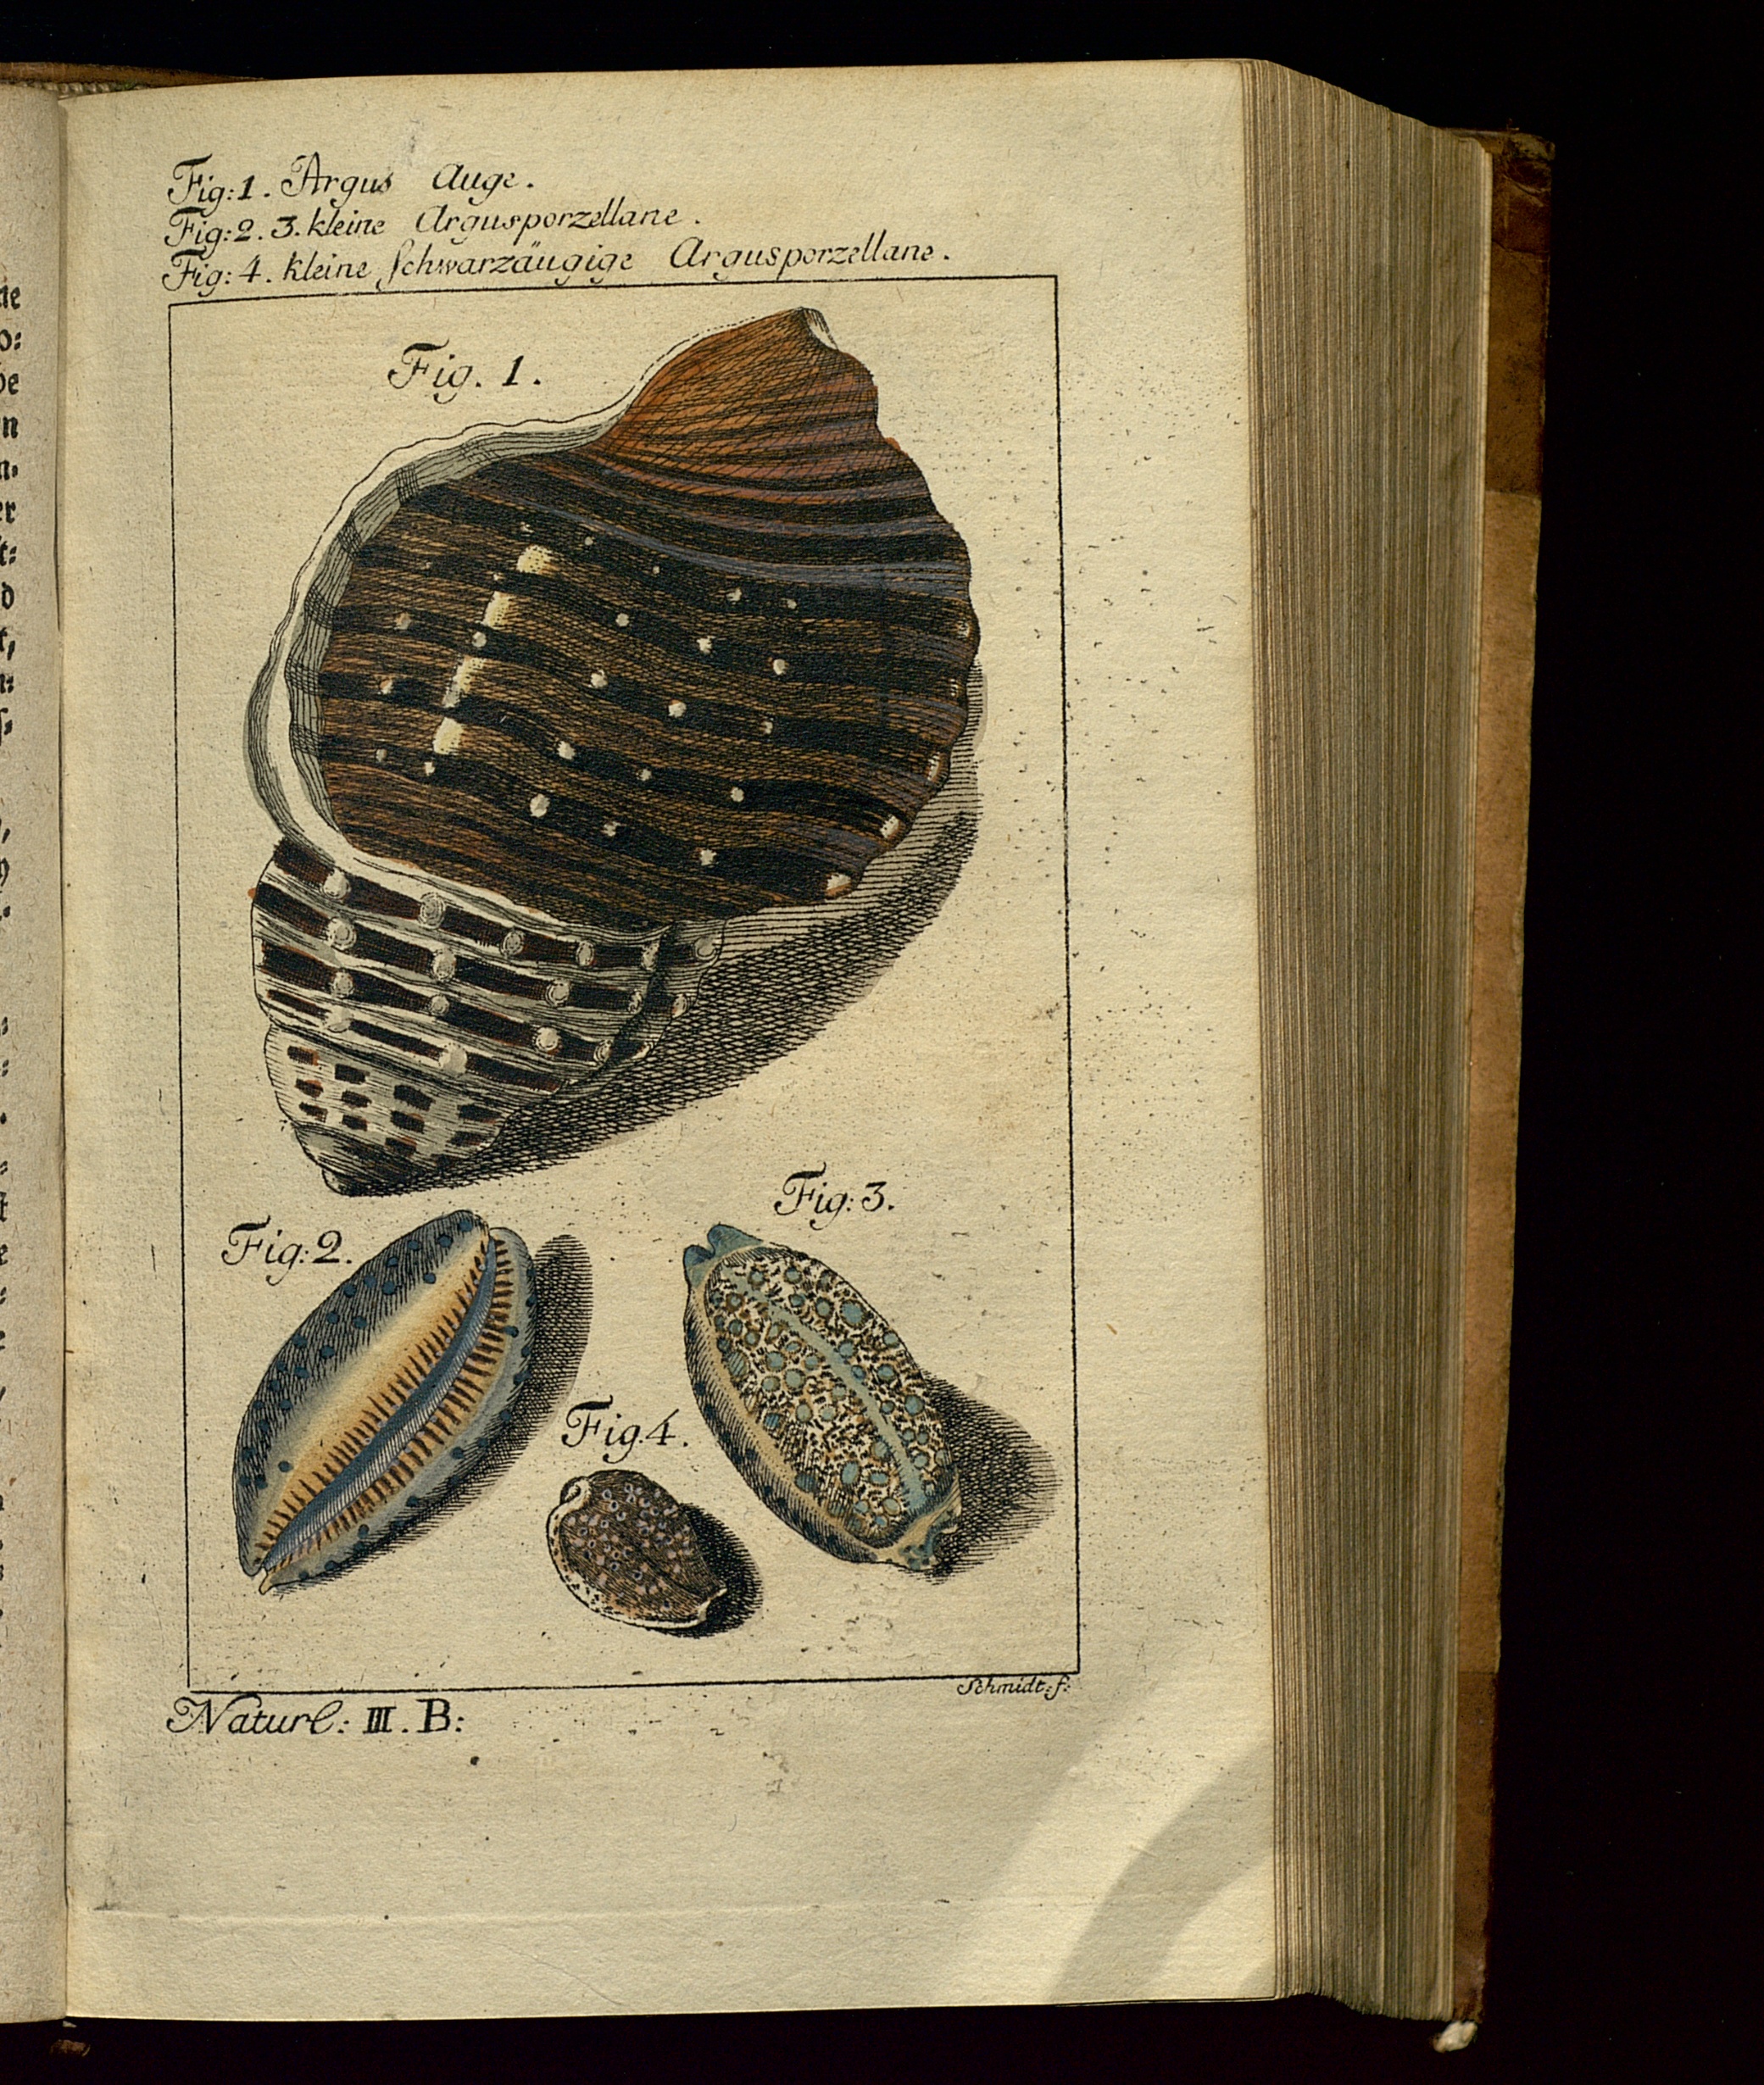 Fig: 1. Argus Auge.
Fig: 2. 3. kleine Argusporzellane.
Fig: 4. kleine schwarzäugige Argusporzellane.
Fig. 1.
Fig: 2.
Fig: 3.
Fig. 4.
Schmidt: f:
Naturl: III. B: